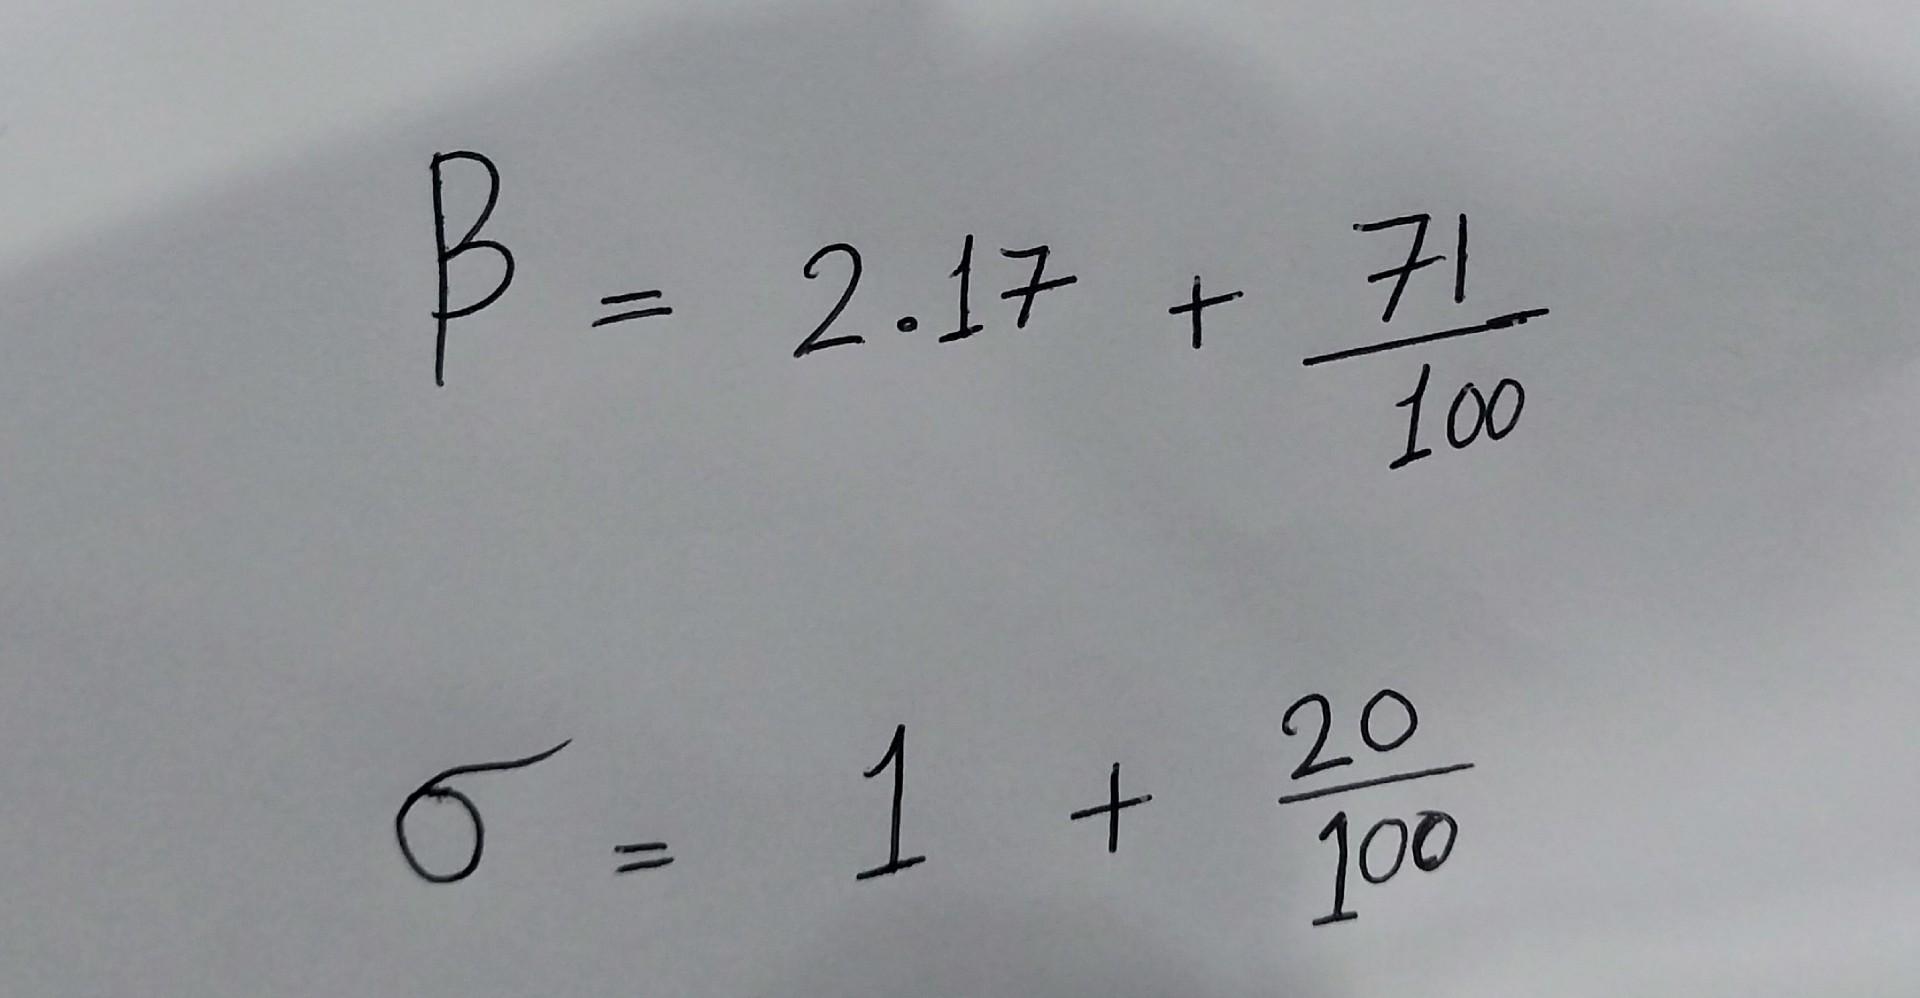 β = 2.17 + 71/100
σ = 1 + 20/100